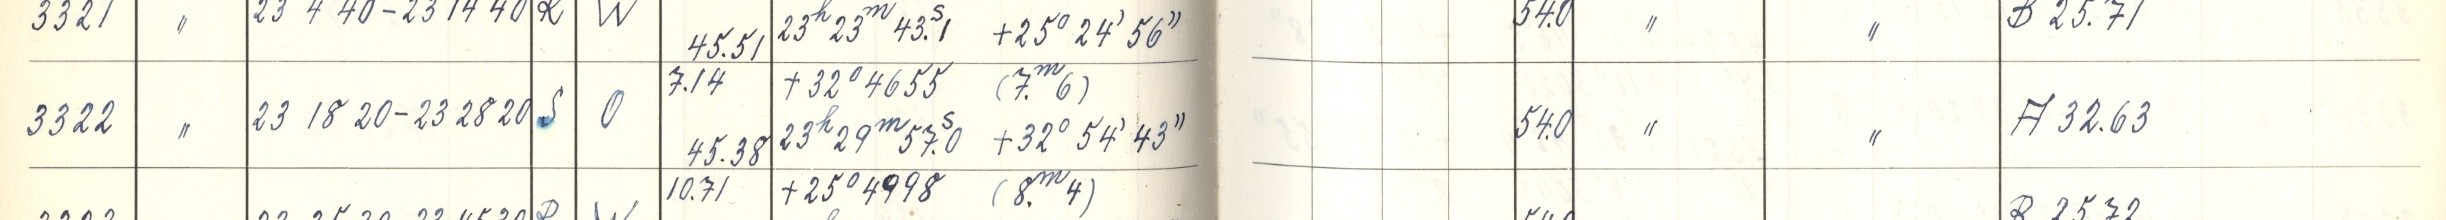 3321 " 23 4 40 - 23 14 40 R W 45.51 23h 23m 43s.1 +25° 24' 56" 54.0 " " B 25.71
7.14 +32° 4655 (7.m 6)
3322 " 23 18 20 - 23 28 20 S O 45.38 23h 29m 57s.0 +32° 54' 43" 54.0 " " A 32.63
10.71 +25° 4998 (8.m 4)